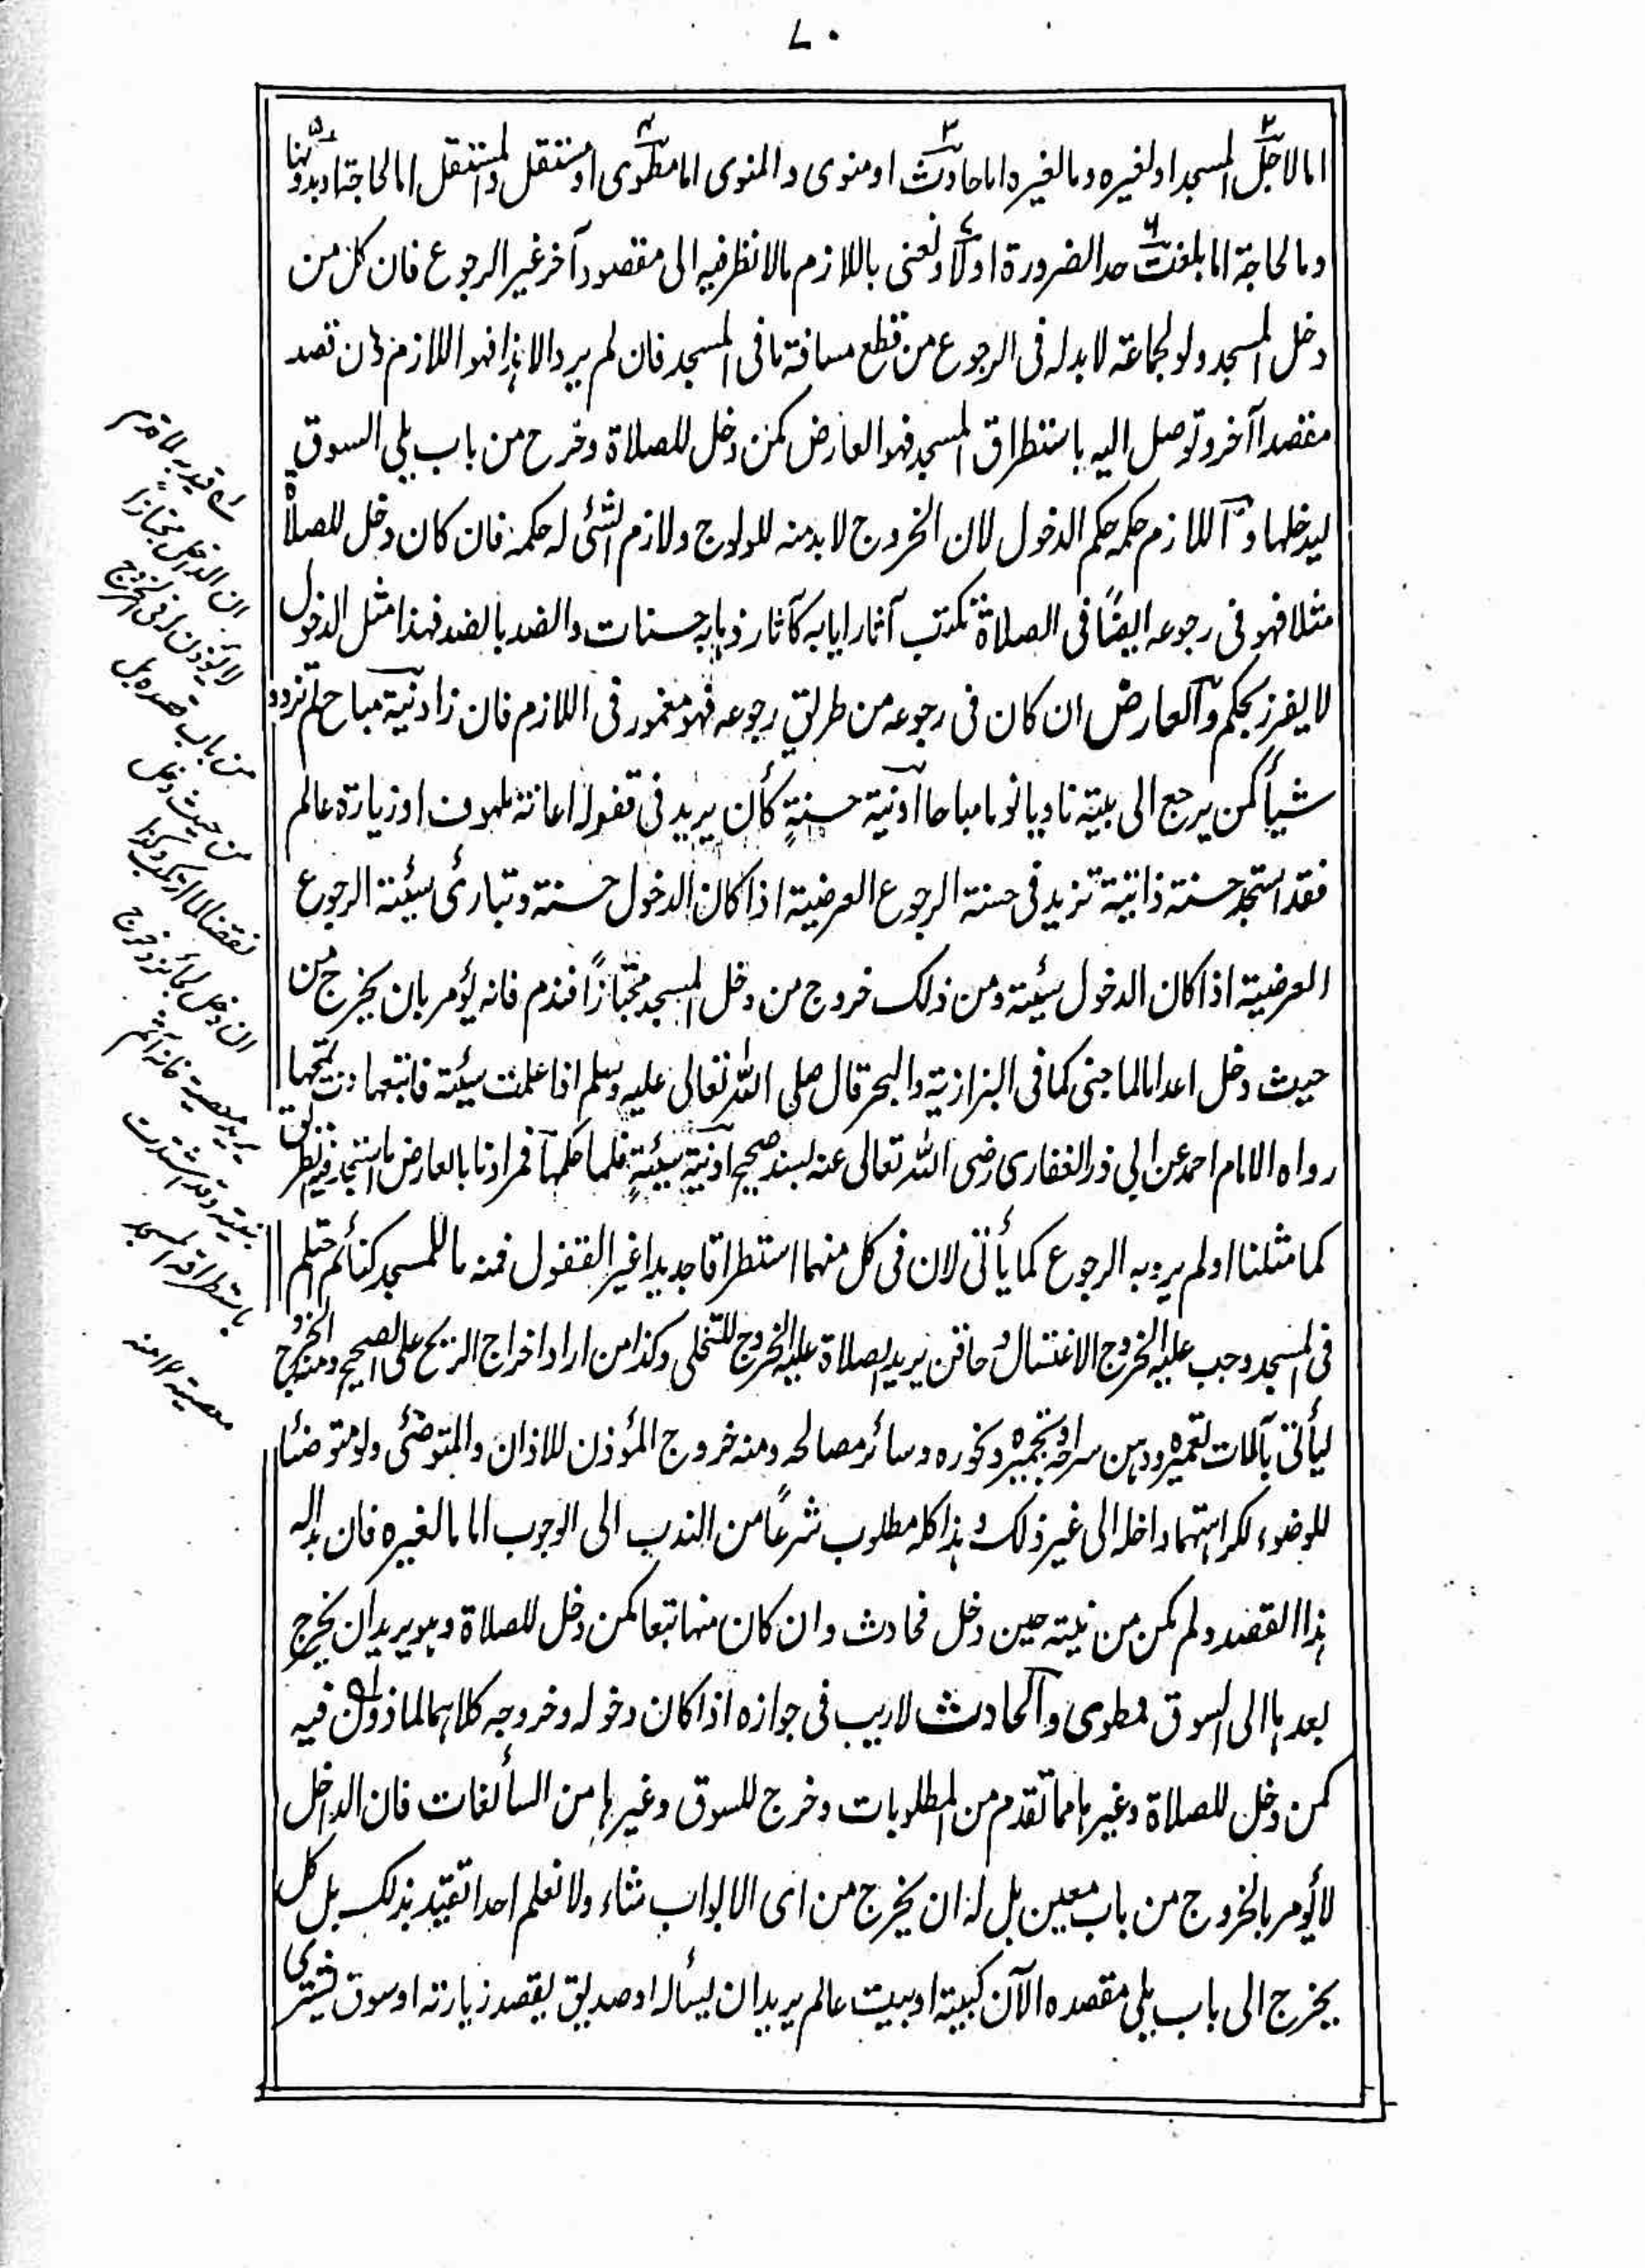 ٧٠
اما لاجل المسجد او لغيره وما لغيره اما حادث او منوى والمنوى اما مطوى او مستقل والمستقل اما لحاجة او بدونها
وما لحاجة اما بلغت حد الضرورة اولا ونعنى باللازم مالا نظر فيه الى مقصود آخر غير الرجوع فان كل من
دخل المسجد ولو لجماعة لا بد له فى الرجوع من قطع مسافة ما فى المسجد فان لم يرد الا هذا فهو اللازم وان قصد
مقصدا آخر و توصل اليه باستطراق المسجد فهو العارض كمن دخل للصلاة وخرج من باب يلى السوق
ليدخلها و اللازم حكمه حكم الدخول لان الخروج لا بد منه للولوج ولازم الشئ له حكمه فان كان دخل للصلاة
مثلا فهو فى رجوعه ايضًا فى الصلاة تكتب آثار ايابه كآثار ذهابه حسنات والضد بالضد فهذا مثل الدخول
لا يفرز بحكم و العارض ان كان فى رجوعه من طريق رجوعه فهو مغمور فى اللازم فان زاد نية مباح لم تزد
شيأ كمن يرجع الى بيته ناويا نوما مباحا او نية حسنةٍ كأن يريد فى قفوله اعانة ملهوف او زيارة عالم
فقد استجد حسنة ذاتية تزيد فى حسنة الرجوع العرضية اذا كان الدخول حسنة وتبارئ سيئة الرجوع
العرضية اذا كان الدخول سيئة ومن ذلك خروج من دخل المسجد مجتازًا فندم فانه يؤمر بان يخرج من
حيث دخل اعداما لما جنى كما فى البزازية والبحر قال صلى الله تعالى عليه وسلم اذا عملت سيئة فاتبعها حسنة تمحها
رواه الامام احمد عن ابى ذر الغفارى رضى الله تعالى عنه بسند صحيح او نية سيئةٍ فلها حكمها فمرادنا بالعارض ما استجد فيه تطرق
كما مثلنا او لم يرد به الرجوع كما يأتى لان فى كل منهما استطراقا جديدا غير القفول فمنه ما للمسجد كنائم احتلم
فى المسجد وجب عليه الخروج لاغتسال او حاقن يريد الصلاة عليه الخروج للتخلى وكذا من اراد اخراج الريح على الصحيح ومنه الخروج
ليأتى بآلات تعميره ودهن سراجه وتجميره وبخوره وسائر مصالحه ومنه خروج المؤذن للاذان والمتوضئ ولو متوضئا
للوضوء لكراهتهما داخله الى غير ذلك و هذا كله مطلوب شرعًا من الندب الى الوجوب اما ما لغيره فان بدا له
هذا القصد ولم يكن من نيته حين دخل فحادث وان كان منها تبعا كمن دخل للصلاة وهو يريد ان يخرج
بعدها الى السوق فمطوى و الحادث لا ريب فى جوازه اذا كان دخوله وخروجه كلاهما لماذون فيه
كمن دخل للصلاة وغيرها مما تقدم من المطلوبات وخرج للسوق وغيرها من السائغات فان الداخل
لا يؤمر بالخروج من باب معين بل له ان يخرج من اى الابواب شاء ولا نعلم احدا تقيد بذلك بل كل
يخرج الى باب يلى مقصده الآن كبيته او بيت عالم يريد ان يسأله او صديق يقصد زيارته او سوق فيشترى
قيد به لما تقدم
ان الداخل مجتازًا
لا يؤذن له فى الخروج
من باب قصده بل
من حيث دخل
نقضا لما ارتكب وكذا
ان دخل لجائز وخرج
يريد معصية فانه آثم
بنيته وقد اشتدت
باستطراقه المسجد
معصية ١٢ منه